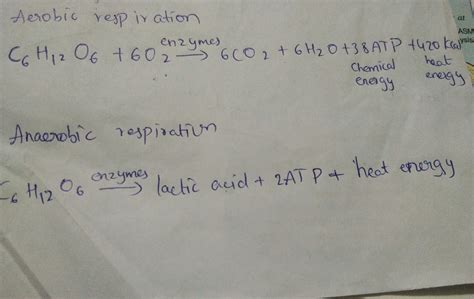 Aerobic respiration
C6H12O6 + 6O2 enzymes→ 6CO2 + 6H2O + 38ATP + 420 kcal
Chemical energy heat energy
Anaerobic respiration
C6H12O6 enzymes→ lactic acid + 2ATP + heat energy
at
ASM